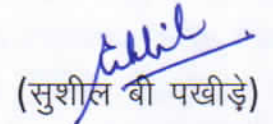 (सुशील बी पखीड़े)